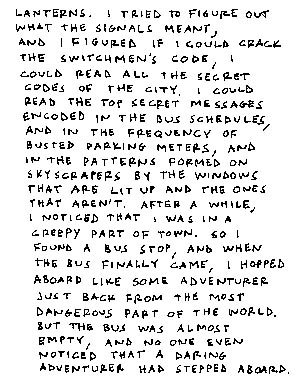 LANTERNS. I TRIED TO FIGURE OUT
WHAT THE SIGNALS MEANT,
AND I FIGURED IF I COULD CRACK
THE SWITCHMEN'S CODE, I
COULD READ ALL THE SECRET
CODES OF THE CITY. I COULD
READ THE TOP SECRET MESSAGES
ENCODED IN THE BUS SCHEDULES,
AND IN THE FREQUENCY OF
BUSTED PARKING METERS, AND
IN THE PATTERNS FORMED ON
SKYSCRAPERS BY THE WINDOWS
THAT ARE LIT UP AND THE ONES
THAT AREN'T. AFTER A WHILE,
I NOTICED THAT I WAS IN A
CREEPY PART OF TOWN. SO I
FOUND A BUS STOP, AND WHEN
THE BUS FINALLY CAME, I HOPPED
ABOARD LIKE SOME ADVENTURER
JUST BACK FROM THE MOST
DANGEROUS PART OF THE WORLD.
BUT THE BUS WAS ALMOST
EMPTY, AND NO ONE EVEN
NOTICED THAT A DARING
ADVENTURER HAD STEPPED ABOARD.